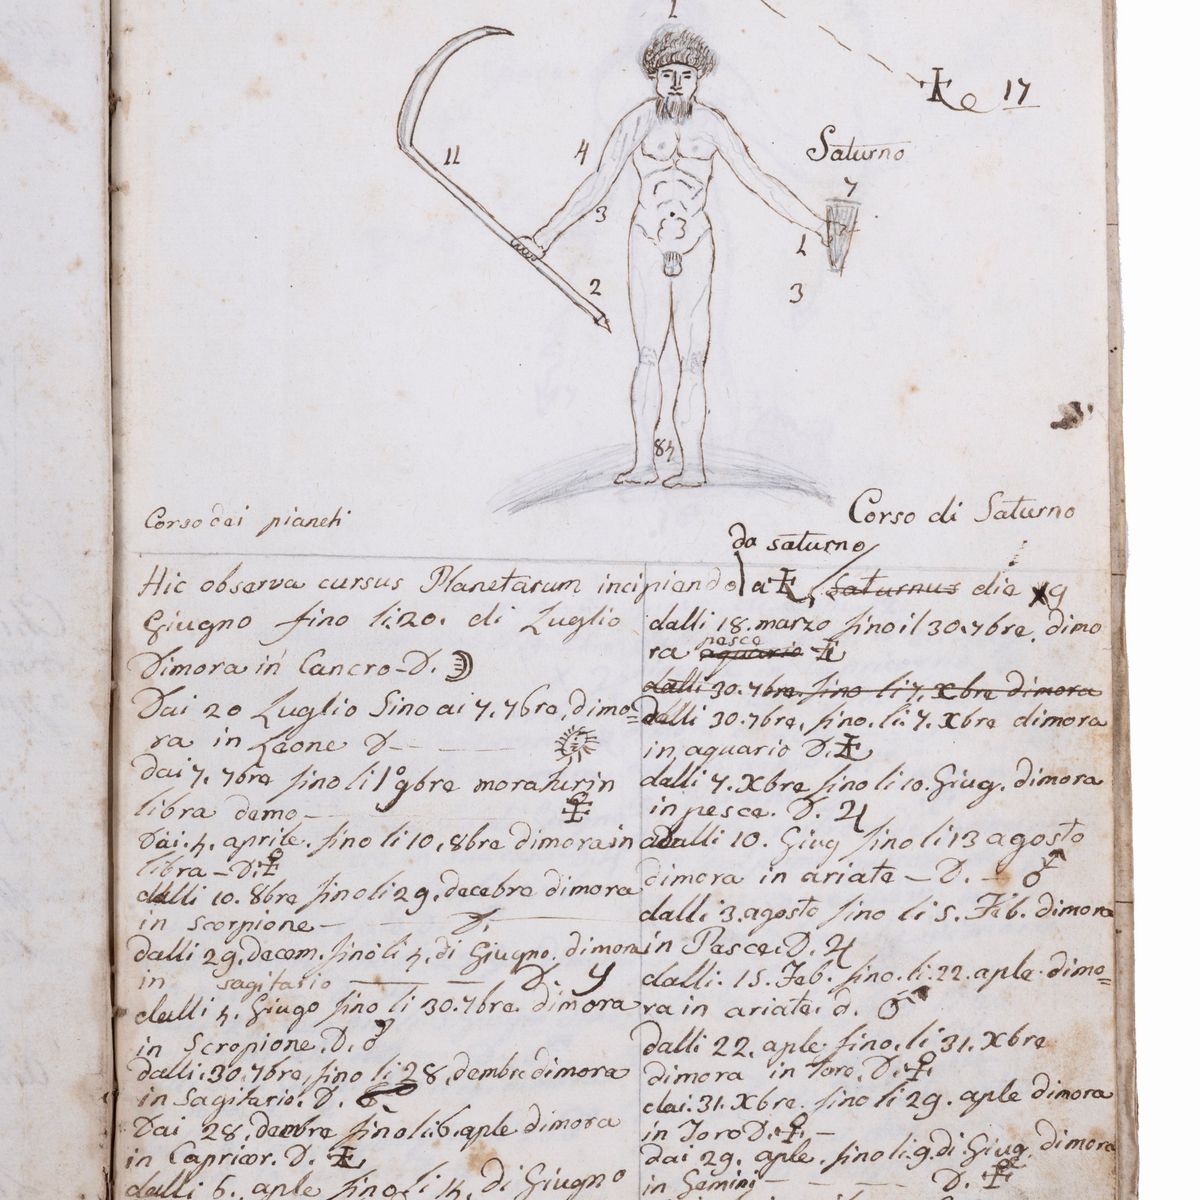 1
♄e 17
Saturno
11
4
7
3
1
2
3
84
Corso dei pianeti
Corso di Saturno
da saturno
Hic observa cursus Planetarum incipiando a ♄, saturnus die x9
Giugno fino li 20. di Luglio
Dimora in Cancro - D. ☽
Dai 20 Luglio Sino ai 7. 7bre, dimo=
ra in Leone D - ☉
dai 7. 7bre fino li 1° 9bre moratur in
libra demo - ♀
Dai. 4. aprile. fino li 10, 8bre dimora in
libra - D. ♀
dalli 10. 8bre fino li 29. decebre dimora
in scorpione - D.
dalli 29. decem. fino li 4. di Giugno. dimora
in sagitario - D
dalli 4. Giugo fino li 30. 7bre. dimora
in Scropione. D. ♂
dalli 30. 7bre, fino li 28, dembre dimora
in Sagitario. D.
Dai 28, dembre fino li 6. aple dimora
in Capricor. D. ♄
dalli 6. aple fino li 4. di Giugno
dalli 18. marzo fino il 30. 7bre. dimo
pesce
ra aquario ♄
dalli 30. 7bre. fino li 7. Xbre dimora
dalli 30. 7bre, fino. li. 7. Xbre dimora
in aquario D. ♄
dalli 7. Xbre fino li 10. Giug. dimora
in pesce. D. ♃
dalli 10. Giug fino li 13 agosto
dimora in ariate - D. - ♂
dalli 3. agosto fino li 5. Feb. dimora
in Pasce. D. ♃
dalli. 15. Feb. fino. li. 22. aple. dimo=
ra in ariate. d. ♂
dalli 22. aple. fino. li 31. Xbre
dimora in Toro. D. ♀
dai. 31. Xbre. fino li 29. aple dimora
in Toro D. ♀ -
dai 29. aple, fino li. 9. di Giug. dimora
in Gemini - D. ☿